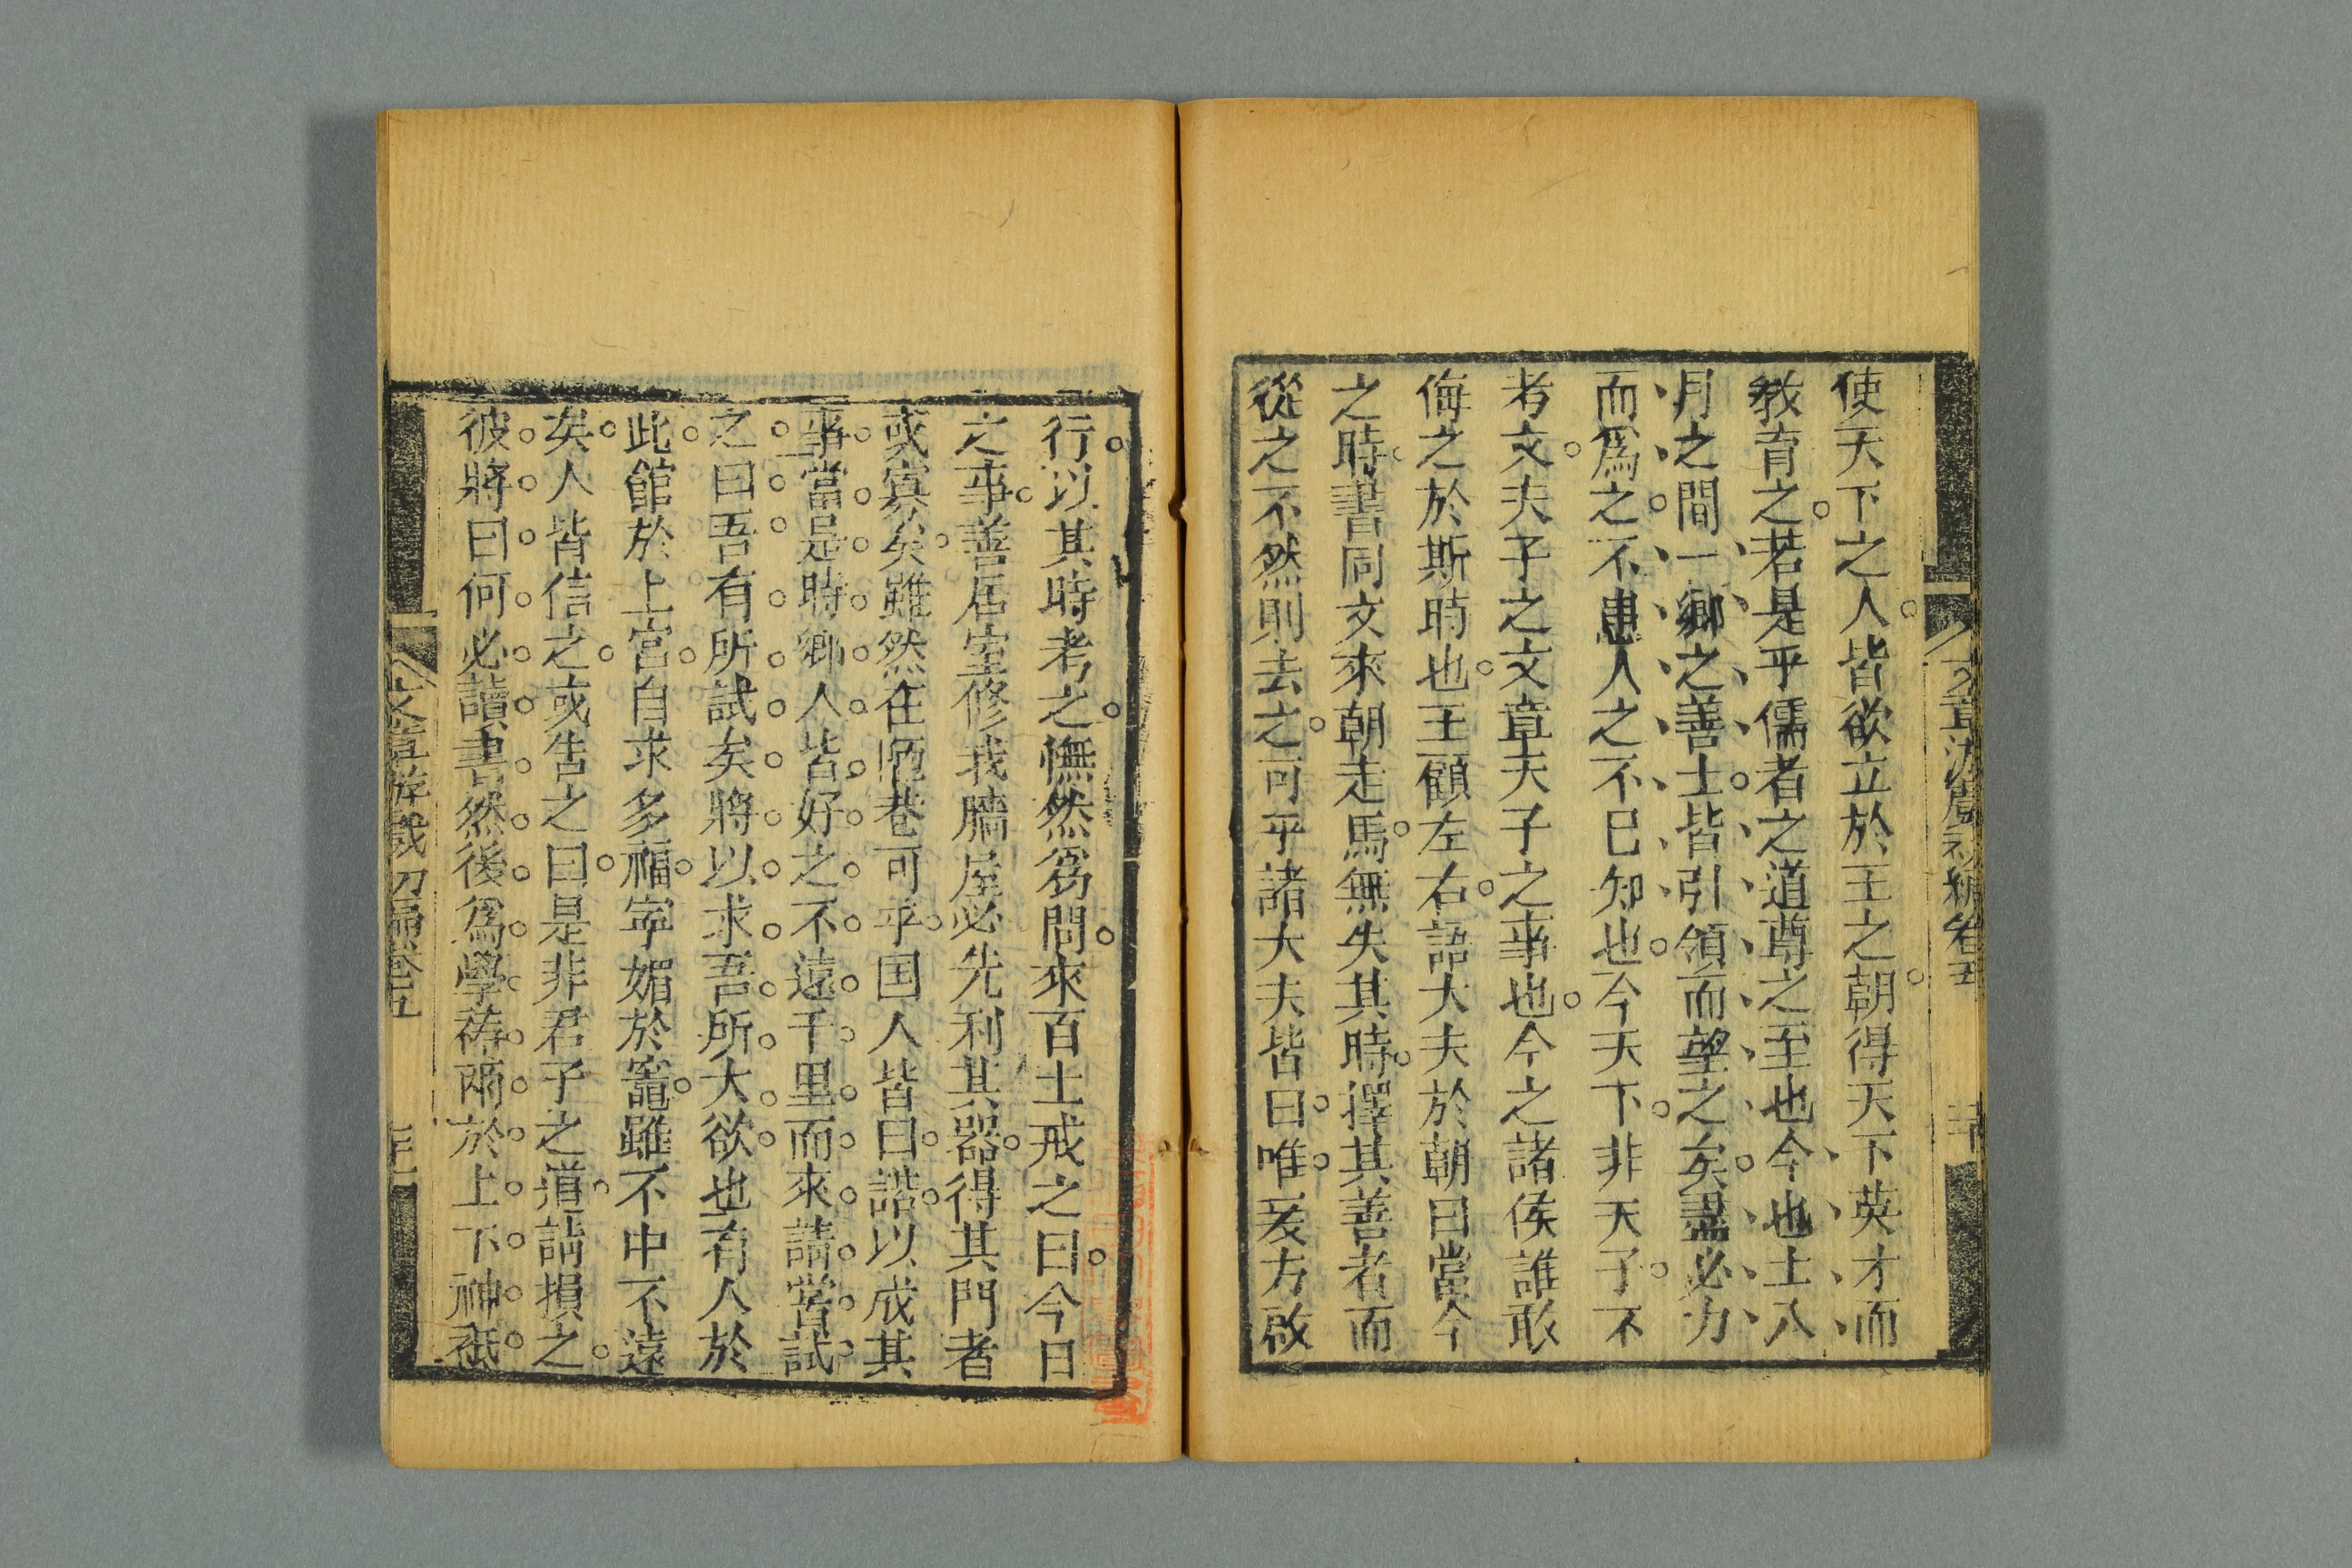 使天下之人皆欲立於王之朝得天下英才而
教育之若是乎儒者之道尊之至也今也士八
月之間一鄉之善士皆引領而望之矣盡必力
而爲之不患人之不已知也今天下非天子不
考文夫子之文章天子之事也今之諸侯誰敢
侮之於斯時也王顧左右語大夫於朝曰當今
之時書同文來朝走馬無失其時擇其善者而
從之不然則去之可乎諸大夫皆曰唯爰方啟
行以其時考之憮然爲問來百士戒之曰今日
之事善居室修我牆屋必先利其器得其門者
或寡矣雖然在陋巷可乎国人皆曰諾以成其
事當是時鄉人皆好之不遠千里而來請嘗試
之曰吾有所試矣將以求吾所大欲也有人於
此館於上宮自求多福寧媚於竈雖不中不遠
矣人皆信之或告之曰是非君子之道請損之
彼將曰何必讀書然後爲學禱爾於上下神祇
文章游戲初編卷五